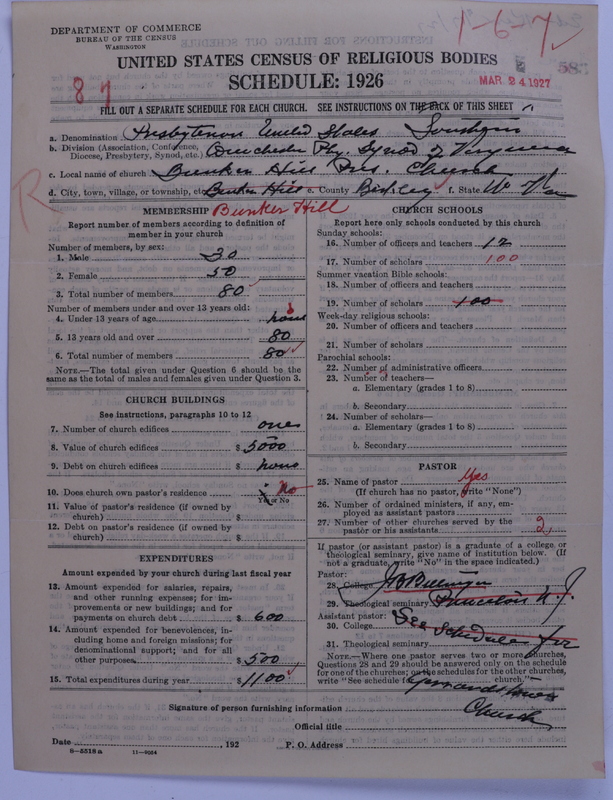 DEPARTMENT OF COMMERCE
BUREAU OF THE CENSUS
WASHINGTON
1-6-7
UNITED STATES CENSUS OF RELIGIOUS BODIES
SCHEDULE: 1926
MAR 24 1927
8 7
FILL OUT A SEPARATE SCHEDULE FOR EACH CHURCH. SEE INSTRUCTIONS ON THE BACK OF THIS SHEET
a. Denomination Presbyterian United States Southern
b. Division (Association, Conference, Diocese, Presbytery, Synod, etc.) Winchester Pby. Synod of Virginia
c. Local name of church Bunker Hill Pres. Church
d. City, town, village, or township, etc. Bunker Hill e. County Berkeley f. State W Va
R
Bunker Hill
MEMBERSHIP
Report number of members according to definition of member in your church
Number of members, by sex:
1. Male 30
2. Female 50
3. Total number of members 80
Number of members under and over 13 years old:
4. Under 13 years of age none
5. 13 years old and over 80
6. Total number of members 80
NOTE.—The total given under Question 6 should be same as the total of males and females given under Question 3.
CHURCH BUILDINGS
See instructions, paragraphs 10 to 12
7. Number of church edifices one
8. Value of church edifices $ 5000
9. Debt on church edifices $ none
10. Does church own pastor's residence No
Yes or No
11. Value of pastor's residence (if owned by church) $
12. Debt on pastor's residence (if owned by church) $
EXPENDITURES
Amount expended by your church during last fiscal year
13. Amount expended for salaries, repairs, and other running expenses; for improvements or new buildings; and for payments on church debt $ 600
14. Amount expended for benevolences, including home and foreign missions; for denominational support; and for all other purposes $ 500
15. Total expenditures during year $ 1100
CHURCH SCHOOLS
Report here only schools conducted by this church
Sunday schools:
16. Number of officers and teachers 12
17. Number of scholars 100
Summer vacation Bible schools:
18. Number of officers and teachers
19. Number of scholars 100
Week-day religious schools:
20. Number of officers and teachers
21. Number of scholars
Parochial schools:
22. Number of administrative officers
23. Number of teachers—
a. Elementary (grades 1 to 8)
b. Secondary
24. Number of scholars—
a. Elementary (grades 1 to 8)
b. Secondary
PASTOR
25. Name of pastor Yes
(If church has no pastor, write "None")
26. Number of ordained ministers, if any, employed as assistant pastors
27. Number of other churches served by the pastor or his assistants 2
If pastor (or assistant pastor) is a graduate of a college or theological seminary, give name of institution below. (If not a graduate, write "No" in the space indicated.)
Pastor:
28. College
29. Theological seminary Princeton N. J.
Assistant pastor: See Schedule for
30. College
31. Theological seminary
NOTE.—Where one pastor serves two or more churches, Questions 28 and 29 should be answered only on the schedule for one of the churches; on the schedules for the other churches, write "See schedule for church."
Church
Signature of person furnishing information
Official title
Date , 192 P. O. Address
8-5518a 11-9004